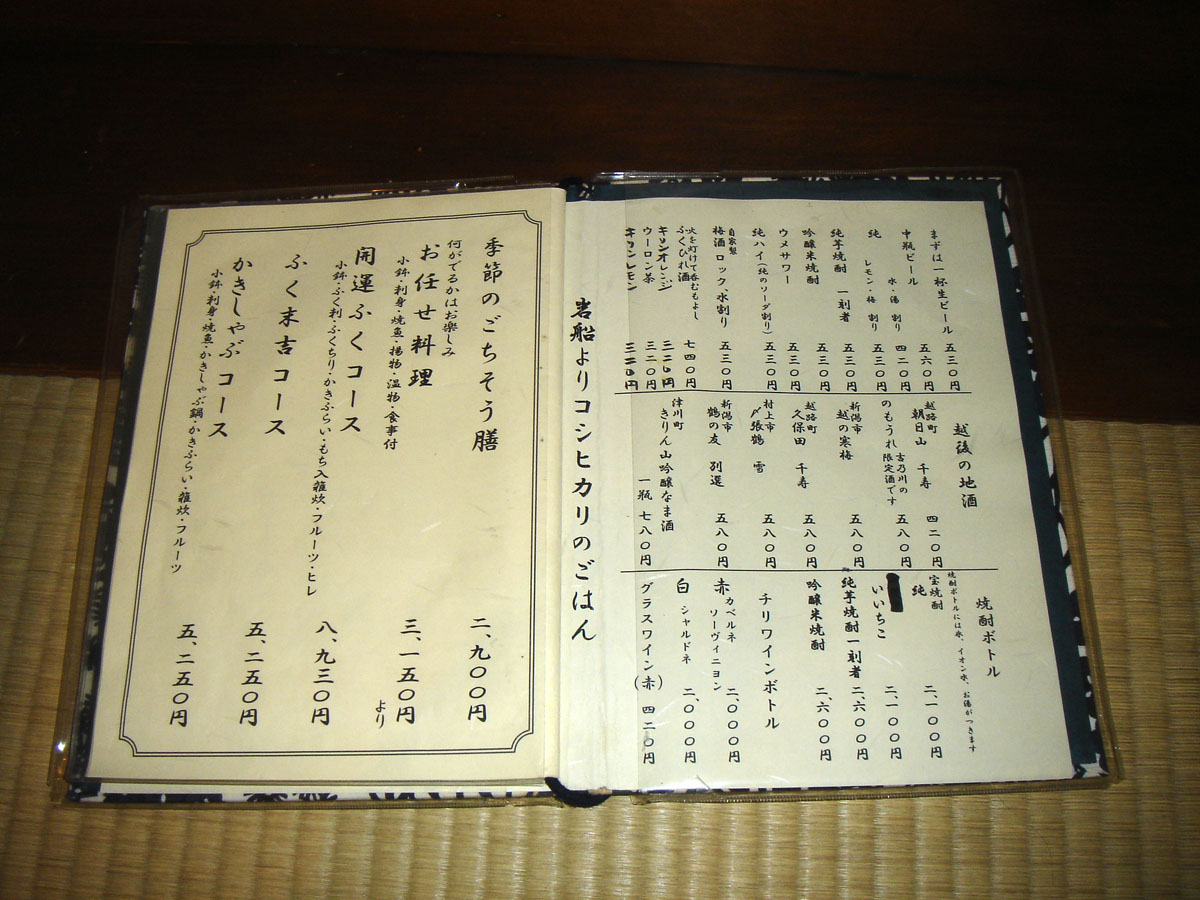 まずは一杯生ビール 五三〇円
中瓶ビール 五六〇円
純 水・湯 割り 四二〇円
レモン・梅 割り 五三〇円
純芋焼酎 一刻者 五三〇円
吟醸米焼酎 五三〇円
ウメサワー
純ハイ(純のソーダ割り) 五三〇円
自家製
梅酒 ロック、水割り 五三〇円
火を灯けて呑むもよし
ふくひれ酒 七四〇円
キリンオレンジ 三二〇円
ウーロン茶 三二〇円
キリンレモン 三二〇円
越後の地酒
越路町
朝日山 千寿 四二〇円
吉乃川の
のもうれ 限定酒です 五八〇円
新潟市
越の寒梅 五八〇円
越路町
久保田 千寿 五八〇円
村上市
〆張鶴 雪 五八〇円
新潟市
鶴の友 別選 五八〇円
津川町
きりん山吟醸なま酒
一瓶 七八〇円
焼酎ボトル
焼酎ボトルには氷、イオン水、お湯がつきます
宝焼酎
純 二、一〇〇円
いいちこ 二、一〇〇円
純芋焼酎一刻者 二、六〇〇円
吟醸米焼酎 二、六〇〇円
チリワインボトル
赤 カベルネ
ソーヴィニヨン 二、〇〇〇円
白 シャルドネ 二、〇〇〇円
グラスワイン(赤) 四二〇円
岩船よりコシヒカリのごはん
季節のごちそう膳 二、九〇〇円
何がでるかはお楽しみ
お任せ料理 三、一五〇円より
小鉢・刺身・焼魚・揚物・温物・食事付
開運ふくコース 八、九三〇円
小鉢・ふく刺・ふくちり・かきふらい・もち入雑炊・フルーツ・ヒレ
ふく末吉コース 五、二五〇円
かきしゃぶコース 五、二五〇円
小鉢・刺身・焼魚・かきしゃぶ鍋・かきふらい・雑炊・フルーツ